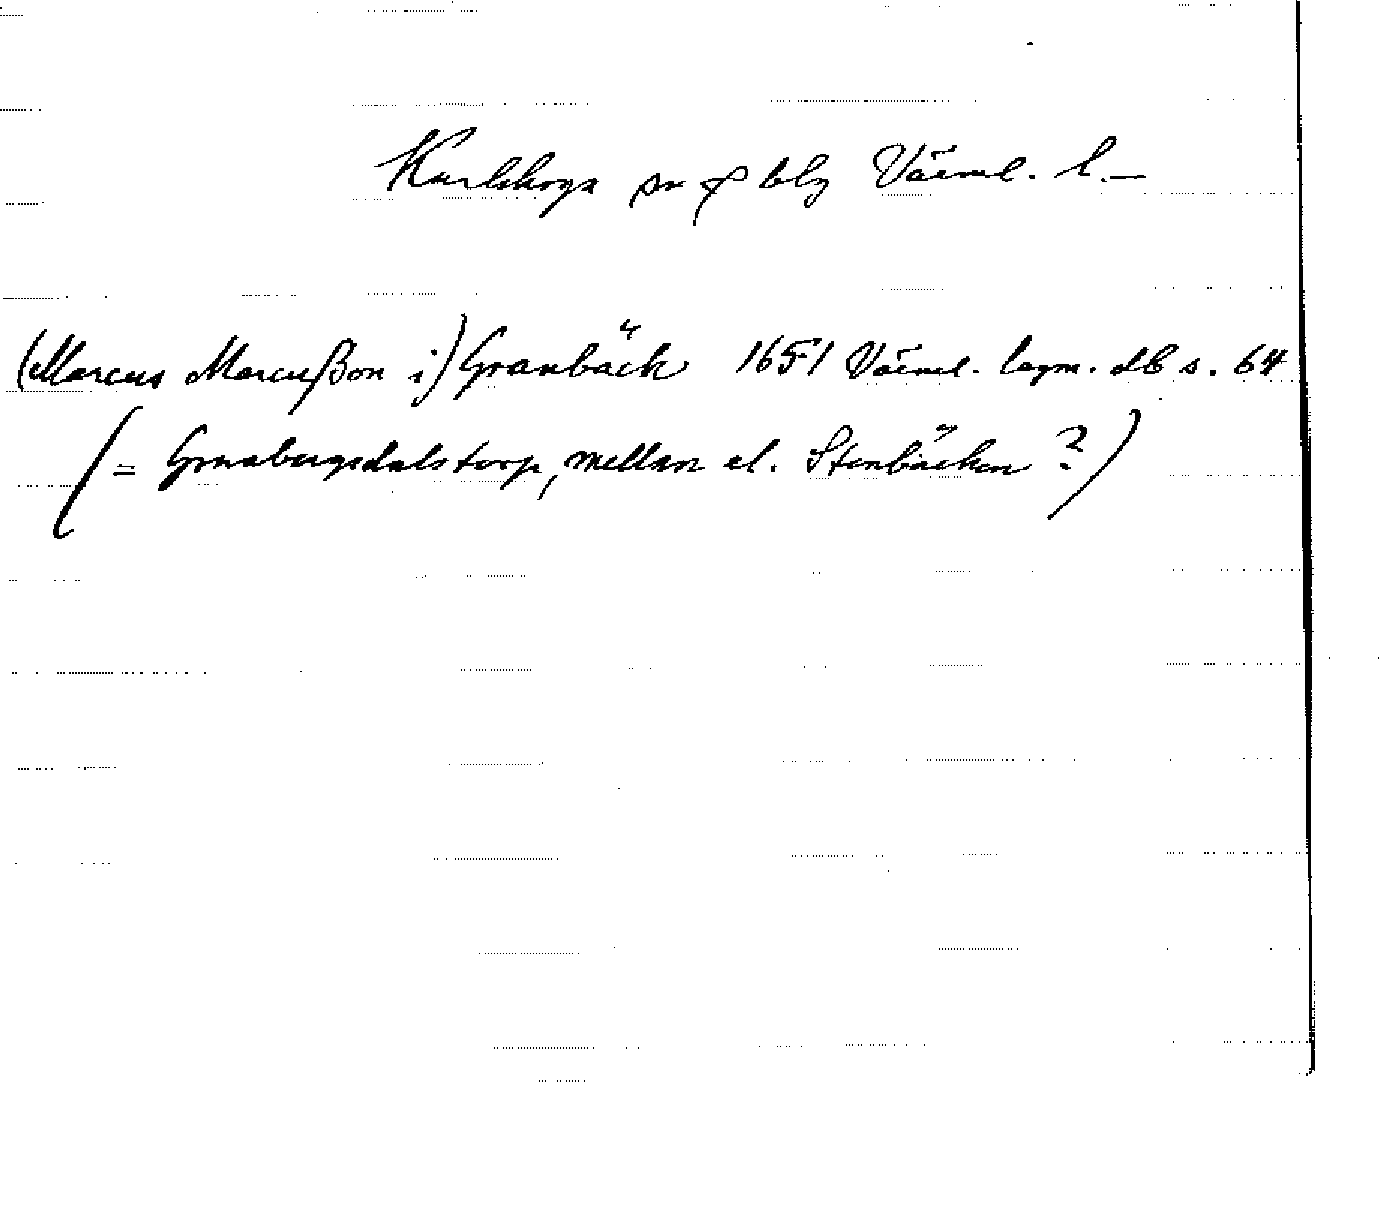 Karlskoga sn & blg Värml. l.—
(Marcus Marcußon i) Granbäck 1651 Värml. lagm. db s. 64
(= Granbergsdalstorp, mellan el. Stenbäcken ?)